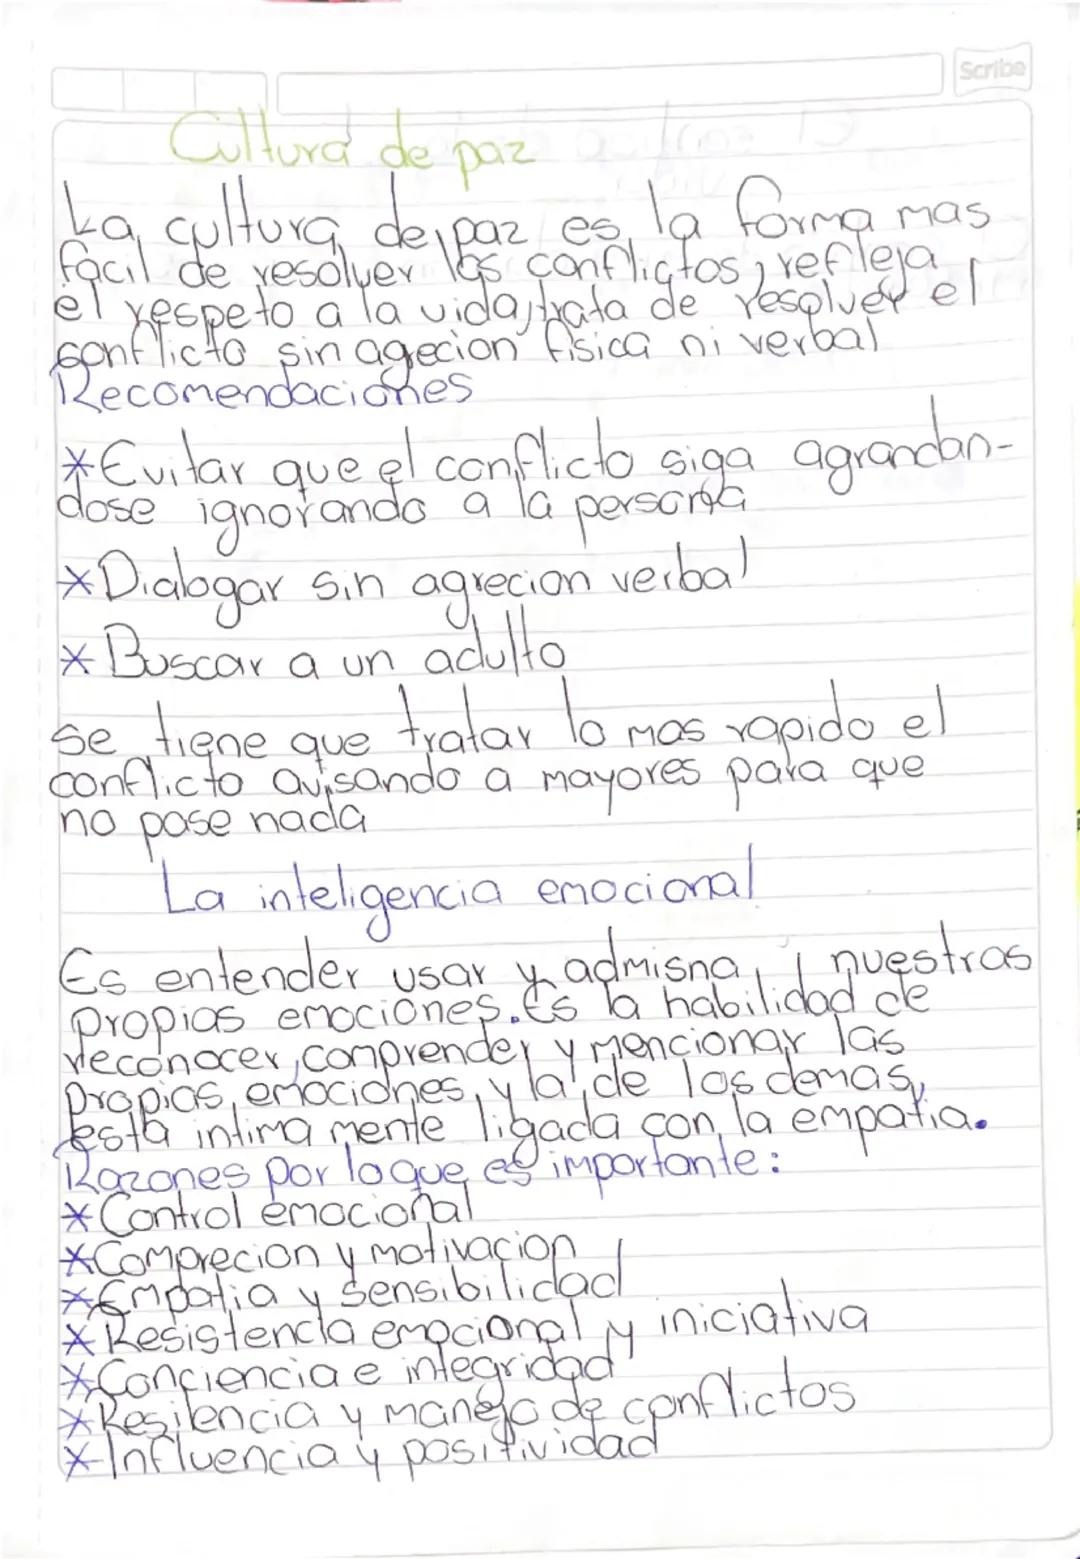 Scribe
Cultura de paz
La cultura de paz es la forma mas
facil de resolver los conflictos, refleja
el respeto a la vida, trata de resolver el
conflicto sin agecion fisica ni verbal
Recomendaciones
*Evitar que el conflicto siga agrandan-
dose ignorando a la persona
*Dialogar sin agrecion verbal
*Buscar a un adulto
se tiene que tratar lo mas rapido el
conflicto avisando a mayores para que
no pase nada
La inteligencia emocional
Es entender usar y nuestras
propias emociones. Es la habilidad de
reconocer, comprender y mencionar las
propias emociones, y la de los demas,
esta intima mente ligada con la empatia.
Razones por lo que es importante:
*Control emocional
*Comprecion y motivacion
*Empatia y sensibilidad
*Resistencia emocional y iniciativa
*Conciencia e integridad
*Resilencia y manejo de conflictos
*Influencia y positividad